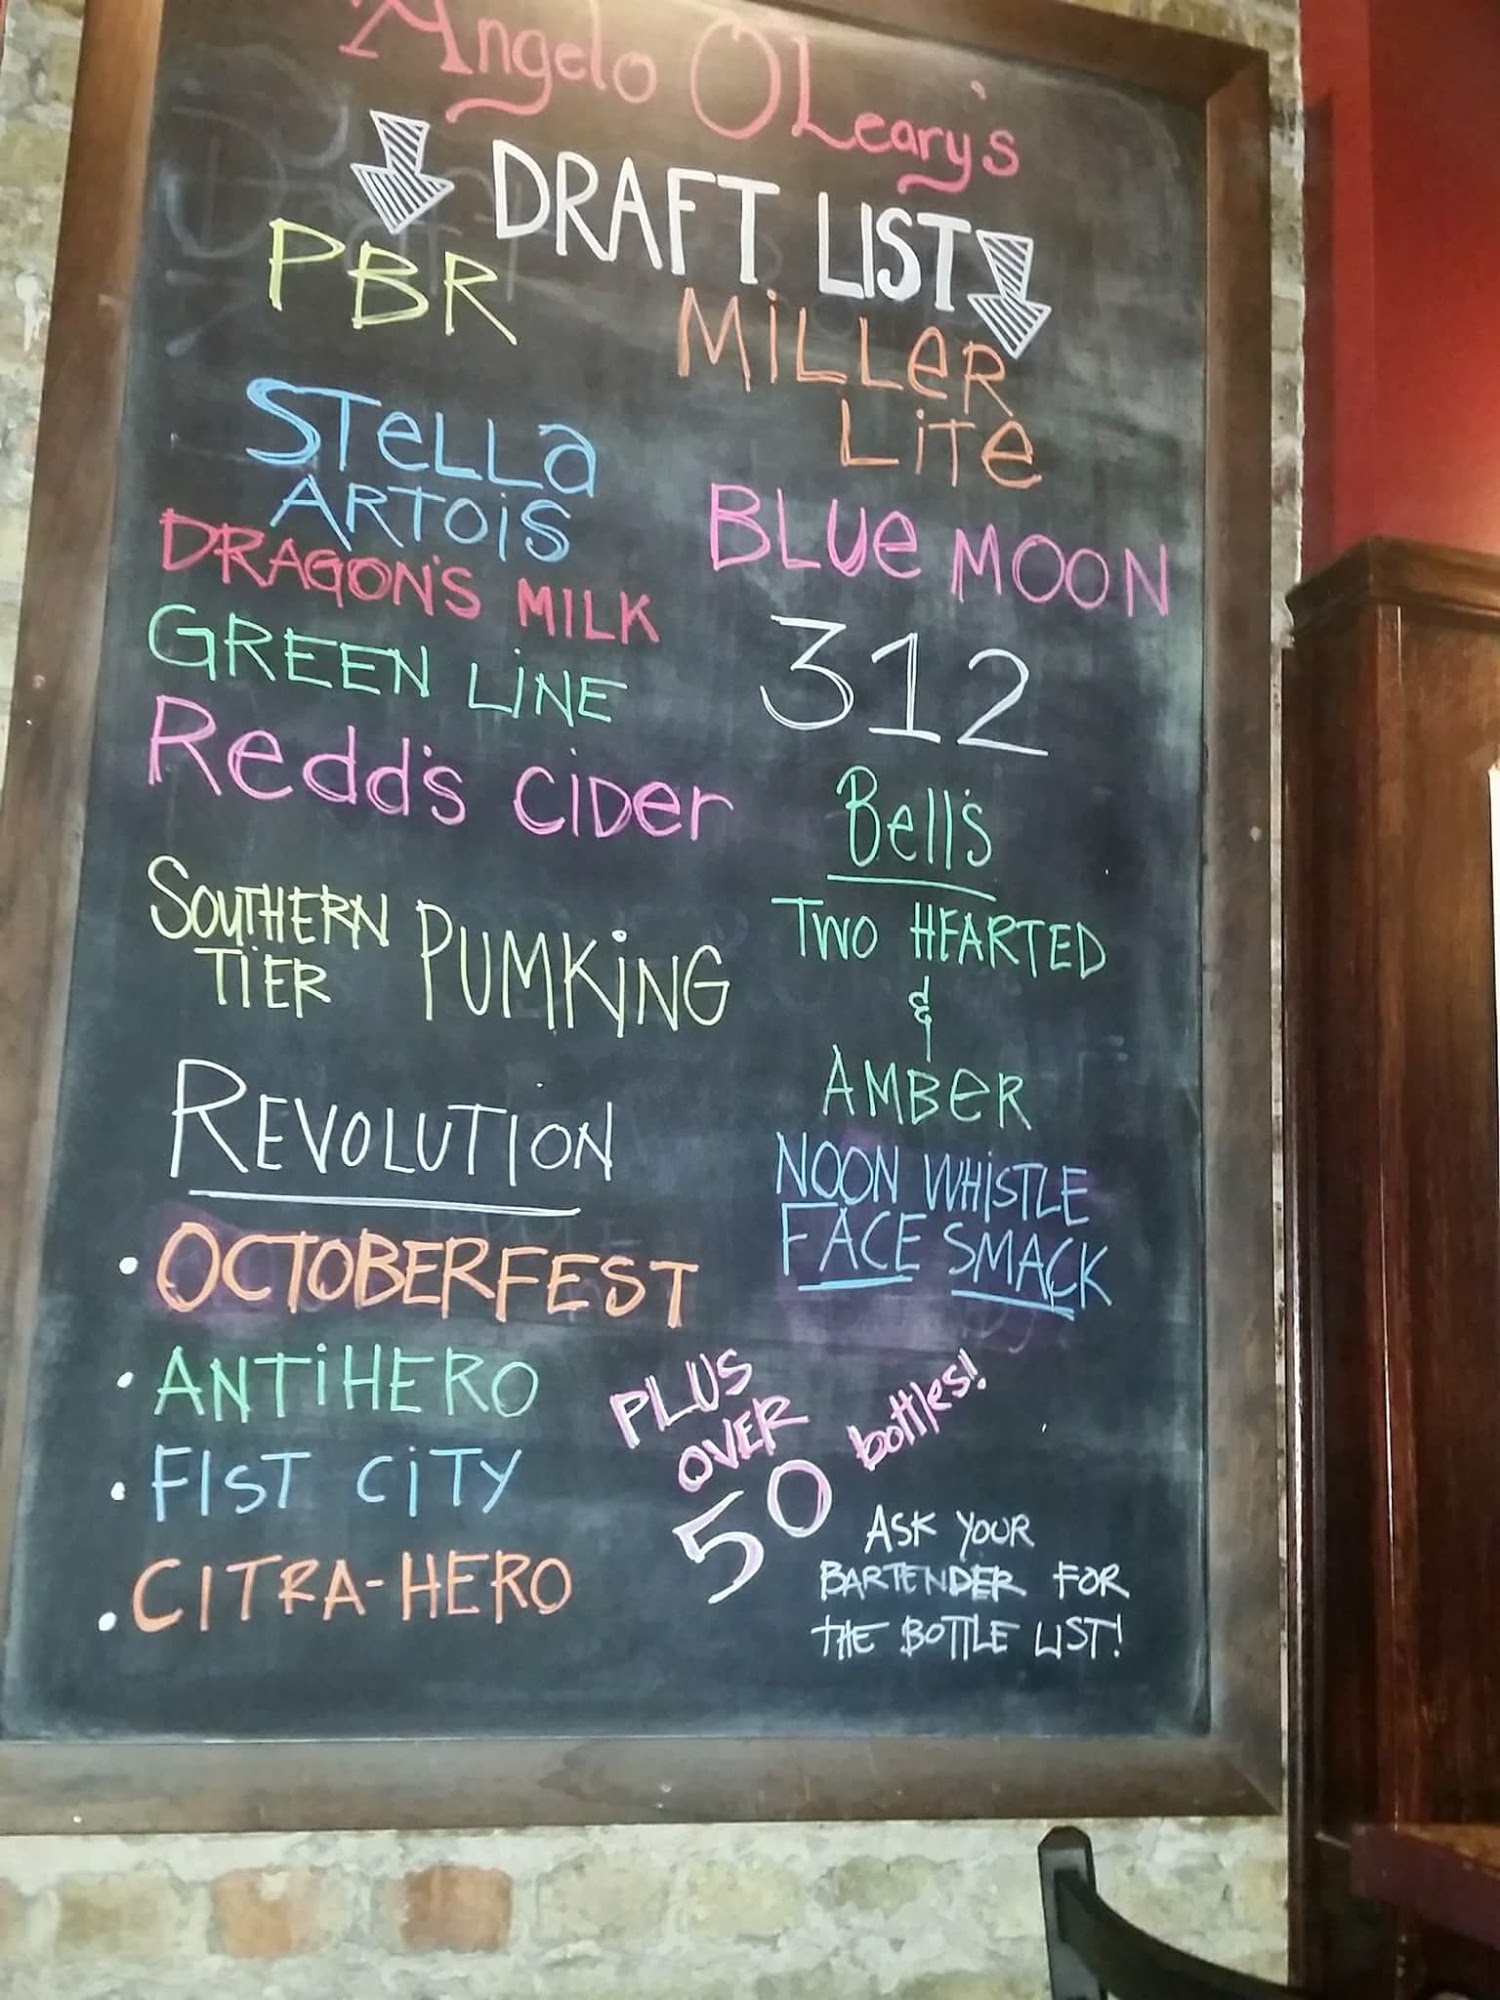 Angelo O'Leary's
DRAFT LIST
PBR
STELLA
ARTOIS
DRAGON'S MILK
GREEN LINE
Redd's CiDer
SOUTHERN
TIER
PUMKING
REVOLUTION
• OCTOBERFEST
• ANTIHERO
• FIST CITY
• CITRA-HERO
MILLER
LITE
BLUE MOON
312
Bell's
TWO HEARTED
&
AMBER
NOON WHISTLE
FACE SMACK
PLUS
OVER
50
bottles!
ASK YOUR
BARTENDER FOR
THE BOTTLE LIST!